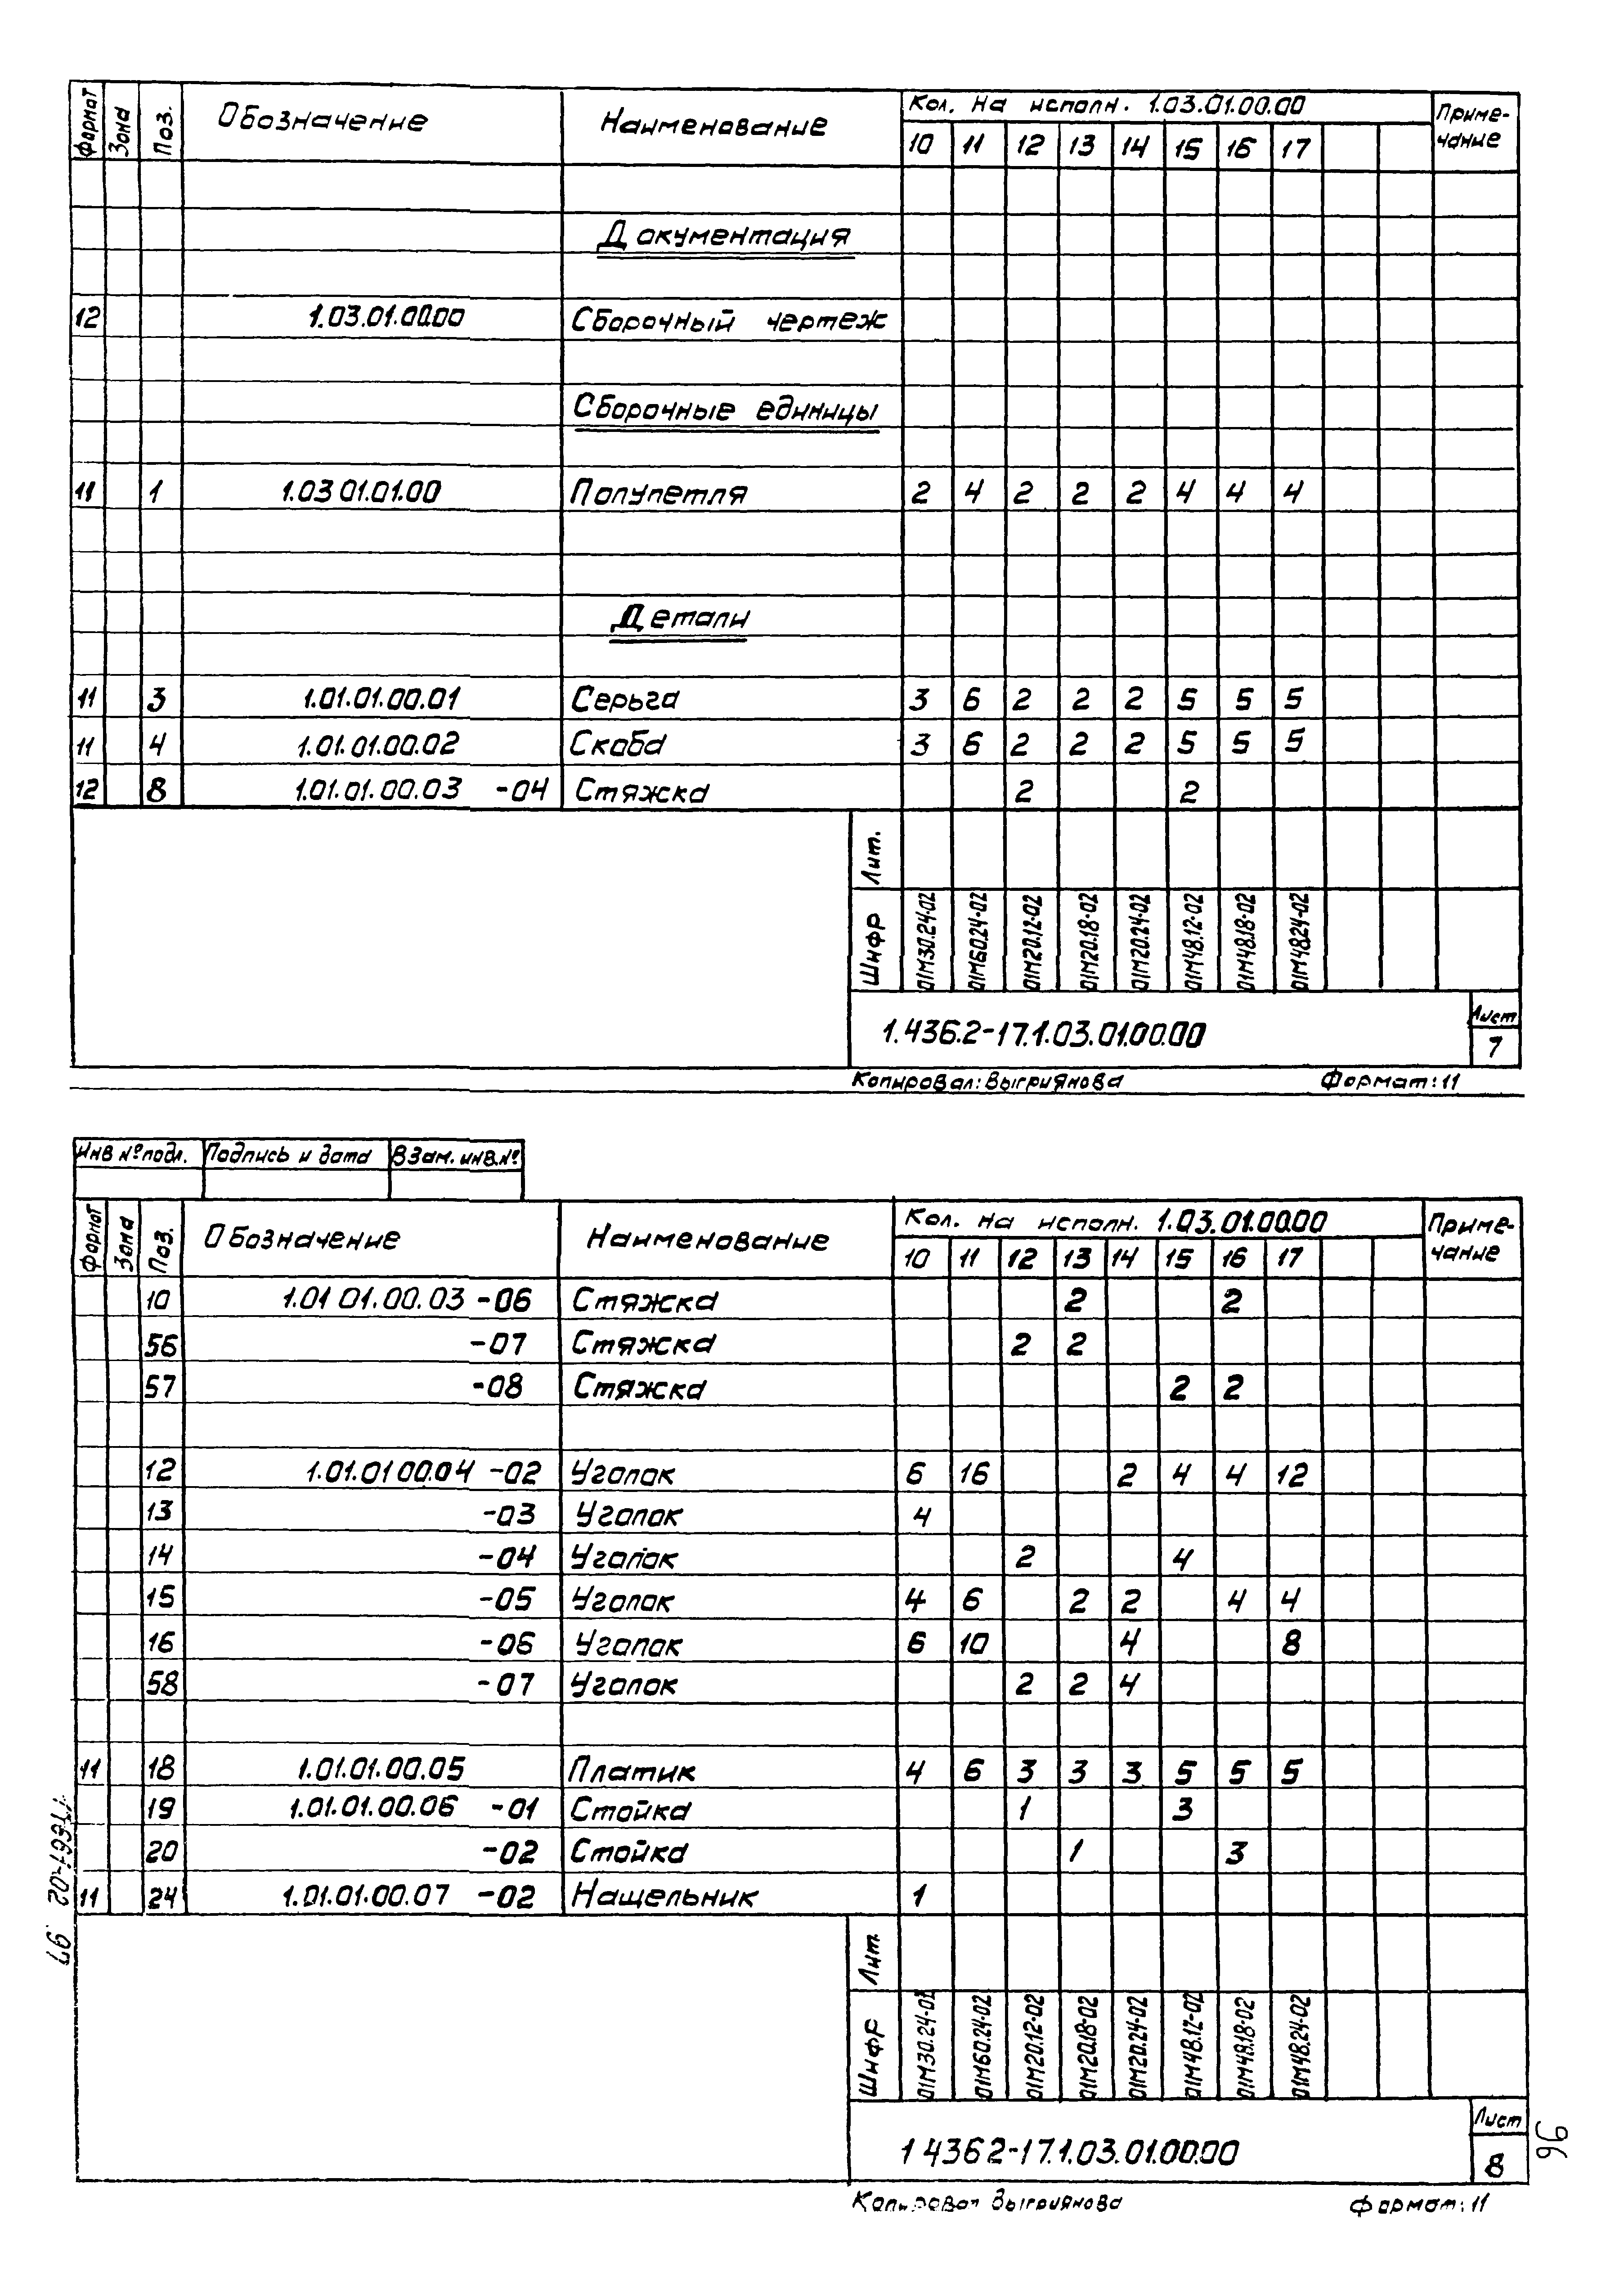 Формат Зона Поз. Обозначение Наименование Кол. на исполн. 1.03.01.00.00 Приме-
10 11 12 13 14 15 16 17 чание
Документация
12 1.03.01.00.00 Сборочный чертеж
Сборочные единицы
11 1 1.03 01.01.00 Полупетля 2 4 2 2 2 4 4 4
Детали
11 3 1.01.01.00.01 Серьга 3 6 2 2 2 5 5 5
11 4 1.01.01.00.02 Скоба 3 6 2 2 2 5 5 5
12 8 1.01.01.00.03 -04 Стяжка 2 2
Лит.
Шифр 01М30.24-02 01М60.24-02 01М20.12-02 01М20.18-02 01М20.24-02 01М48.12-02 01М48.18-02 01М48.24-02
1.436.2-17.1.03.01.00.00 Лист
7
Копировал: Выгриянова Формат: 11
Инв № подл. Подпись и дата Взам. инв. №
Формат Зона Поз. Обозначение Наименование Кол. на исполн. 1.03.01.00.00 Приме-
10 11 12 13 14 15 16 17 чание
10 1.01 01.00.03 -06 Стяжка 2 2
56 -07 Стяжка 2 2
57 -08 Стяжка 2 2
12 1.01.01 00.04 -02 Уголок 6 16 2 4 4 12
13 -03 Уголок 4
14 -04 Уголок 2 4
15 -05 Уголок 4 6 2 2 4 4
16 -06 Уголок 6 10 4 8
58 -07 Уголок 2 2 4
11 18 1.01.01.00.05 Платик 4 6 3 3 3 5 5 5
19 1.01.01.00.06 -01 Стойка 1 3
20 -02 Стойка 1 3
11 24 1.01.01.00.07 -02 Нащельник 1
Лит.
Шифр 01М30.24-02 01М60.24-02 01М20.12-02 01М20.18-02 01М20.24-02 01М48.12-02 01М48.18-02 01М48.24-02
1 436 2-17.1.03.01.00.00 Лист
8
Копировал Выгриянова Формат: 11
97
96